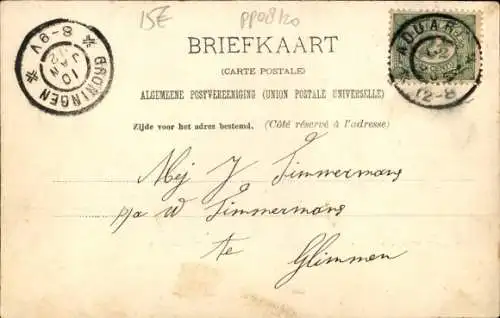 15E
PP08120
BRIEFKAART
(CARTE POSTALE)
ALGEMEENE POSTVEREENIGING (UNION POSTALE UNIVERSELLE)
Zijde voor het adres bestemd. (Côté réservé à l'adresse)
GRONINGEN
8-9V
10
JAN
ADUARD
12-8
Mej J Timmermans
p/a W Timmermans
te
Glimmen